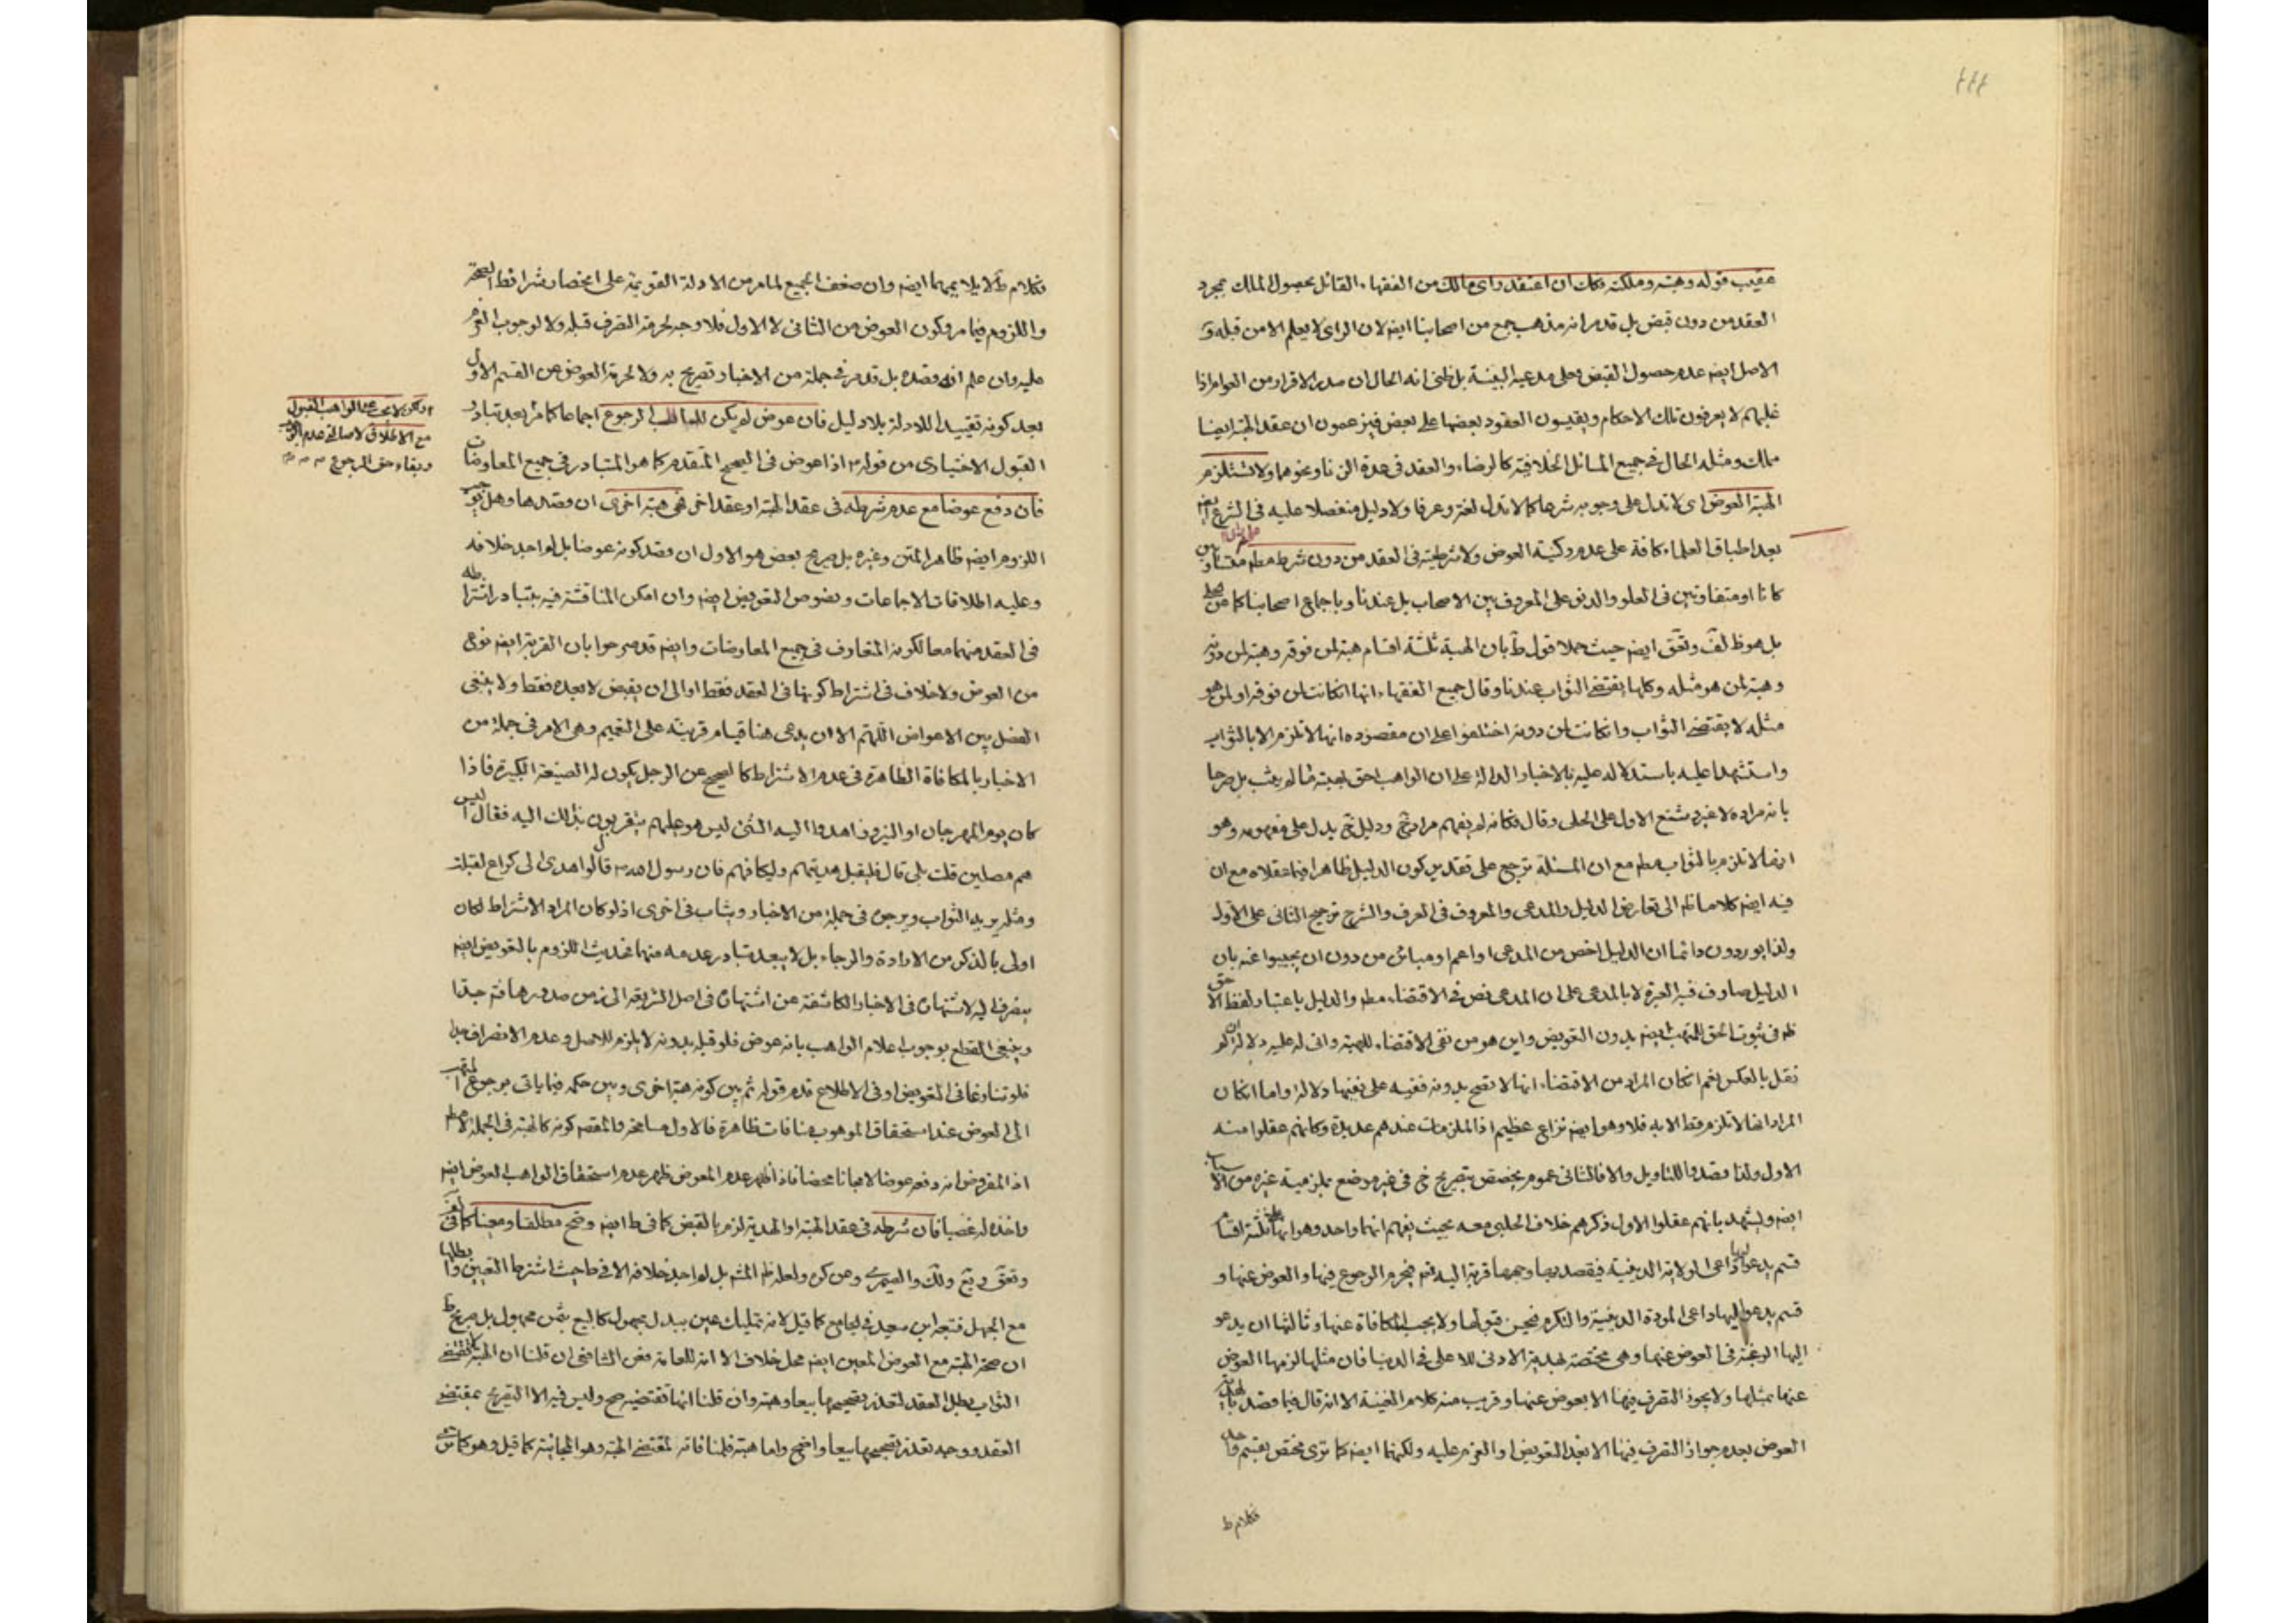 عقيب قوله وهبته وملكته فكان ان اعتقد راى مالك من الفقهاء القائل بحصول الملك بمجرد
العقد من دون قبض بل قد مر انه مذهب جمع من اصحابنا ايضا لان الراى لا يعلم الا من قبله و
الاصل ايضا عدم حصول القبض وعلى مدعيه البينة بل ظنى انه الحال ان صدر الاقرار من العوام اذا
غلبهم لا يعرفون تلك الاحكام ويقيسون العقود بعضها على بعض فيزعمون ان عقد الهبة ايضا
مملك ومثله الحال فى جميع المسائل الخلافية كالرضاء والعقد فى عدة الزنا ونحوهما ولا تستلزم
الهبة العوض اى لا تدل على وجوبه شرعا كما لا تدل لغة وعرفا ولا دليل منفصلا عليه فى الشرع ايضا
بعد اطباق العلماء كافة على عدم ركنية العوض ولا شرطيته فى العقد من دون شرط مطم متساويين
كانا او متفاوتين فى العلو والدنو على المعروف بين الاصحاب بل عندنا وباجماع اصحابنا كما عن
بل هو ظ لف وتفق ايضا حيث حملا قول ط بان الهبة ثلثة اقسام هبة لمن فوقه وهبة لمن دونه
وهبة لمن هو مثله وكلها يقتضى الثواب عندنا وقال جميع الفقهاء انها ان كانت لمن فوقه او لمن هو
مثله لا يقتضى الثواب وان كانت لمن دونه اختلفوا على ان مقصوده انها لا تلزم الا بالثواب
واستشهدا عليه باستدلاله عليه بالاخبار الدالة على ان الواهب احق بهبته ما لم يثب بل صرحا
بانه مراده لا غير وشنع الاول على الحلى وقال فكانه لم يفهم مراد شيخ ودليل شيخ يدل على مفهومه وهو
انها لا تلزم بالثواب مطم مع ان المسئلة ترجيح على تقدير كون الدليل ظاهرا فيما عقلاه مع ان
فيه ايضا كلاما ظم الى تعارض الدليل والمدعى والمعروف فى العرف والشرح ترجيح الثانى على الاول
ولذا يوردون دائما ان الدليل اخص من المدعى او اعم او مباين من دون ان يجيبوا عنه بان
الدليل صارف فيه العبرة لا بالمدعى على ان المدعى نص فى الاقتضاء مطم والدليل باعتبار لفظ الاحق
ظم فى ثبوت الحق للمتهب ايضا بدون التعويض واين هو من نفى الاقتضاء للهبة وانى له عليه دلالة ان لم
نقل بالعكس نعم ان كان المراد من الاقتضاء انها لا تصح بدونه ففيه على نفيها دلالة واما ان كان
المراد انها لا تلزم فقط الا به فلا وهو ايضا نزاع عظيم اذ الملزمات عندهم عديدة وكانهم عقلوا منه
الاول ولذا قصدوا للتاويل والا فالثانى عموم يخصص بتصريح شيخ فى غير موضع بملزمية غيره من الاسباب
ايضا ويشهد بانهم عقلوا الاول ذكرهم خلاف الحلبى معه بحيث يفهم انهما واحد وهو انها ثلثة اقسام
قسم يدعو اليها داعى الولاية الدينية فيقصد بها وجهها قربة اليه تعم فيحرم الرجوع فيها والعوض عنها و
قسم يدعو اليها داعى المودة الدينية والتكرم فيحسن قبولها ولا يجب المكافاة عنها وثالثها ان يدعو
اليها الرغبة فى العوض عنها وهى مختصة بهدية الادنى للاعلى فى الدنيا فان مثلها لزمها العوض
عنها بمثلها ولا يجوز التصرف فيها الا بعوض عنها وقريب منه كلام الغنية الا انه قال فيما قصد بالهدية
العوض بعدم جواز التصرف فيها الا بعد التعويض او العزم عليه ولكنهما ايضا كما ترى مختص بقسم واحد
فكلام ط
فكلام ط لا يلايمهما ايضا وان ضعف الجميع لما مر من الادلة القوية على انحصار شرائط الصحة
واللزوم فيما مر وكون العوض من الثانى لا الاول فلا وجه لحرمة التصرف قبله ولا لوجوب العزم
عليه وان علم انه قصده بل قد مر فى جملة من الاخبار تصريح به ولا لحرمة العوض عن القسم الاول
بعد كونه تقييدا للادلة بلا دليل فان عوض لم يكن للواهب الرجوع اجماعا كما مر بعد تبادر
القبول الاختيارى من قوله م اذا عوض فى الصحيح المتقدم كما هو المتبادر فى جميع المعاوضات
فان دفع عوضا مع عدم شرطه فى عقد الهبة او عقد اخر فهى هبة اخرى ان قصدها وهل يوجب
اللزوم ايضا ظاهر المتن وغيره بل صريح بعض هو الاول ان قصد كونه عوضا بل لم اجد خلافه
وعليه اطلاقات الاجماعات ونصوص التعويض ايضا وان امكن المناقشة فيه بتبادر اشتراطه
فى العقد منهما معا لكونه المتعارف فى جميع المعاوضات وايضا قد صرحوا بان القربة ايضا نوع
من العوض ولا خلاف فى اشتراط كونها فى العقد فقط او الى ان يقبض لا بعده فقط ولا ينبغى
الفصل بين الاعواض اللهم الا ان يدعى هنا قيام قرينة على التعميم وهى الامر فى جملة من
الاخبار بالمكافاة الظاهرة فى عدم الاشتراط كالصحيح عن الرجل يكون له الضيعة الكبيرة فاذا
كان يوم المهرجان او النيروز اهدوا اليه الشئ ليس هو عليهم يتقربون بذلك اليه فقال اليس
هم مصلين قلت بلى قال فليقبل هديتهم وليكافهم فان رسول الله ص قال لو اهدى الى كراع لقبلته
ومثله يريد الثواب ويرجى فى جملة من الاخبار ويثاب فى اخرى اذ لو كان المراد الاشتراط لكان
اولى بالذكر من الارادة والرجاء بل لا يبعد تبادر عدمه منهما فحديث اللزوم بالتعويض ايضا
ينصرف اليه لاشتهاره فى الاخبار الكاشفة عن اشتهاره فى اصل الشريعة الى زمن صدورها فتم جيدا
وينبغى القطع بوجوب اعلام الواهب بانه عوض فلو قبله بدونه لا يلزم للاصل وعدم الانصراف جدا
فلو تنازعا فى التعويض او فى الاطلاع قدم قوله ثم بين كونه هبة اخرى وبين حكمه فيما ياتى برجوع المتهب
الى العوض عند استحقاق الموهوب منافات ظاهرة فالاول مسامحة والمقصم كونه كالهبة فى الجملة لا مطم
اذ المفروض انه دفعه عوضا لا مجانا محضا فاذا ظهر عدم المعوض ظهر عدم استحقاق الواهب العوض ايضا
واخذه له غصبا فان شرطه فى عقد الهبة او الهدية لزم بالقبض كما فى ط ايضا وصح مطلقا ومعينا كما فى لف
مع الجهل فتبعه ابن سعيد فى الجامع كما قيل لانه تمليك عين ببدل مجهول كالبيع بثمن مجهول بل صريح ط
ان صحة الهبة مع العوض المعين ايضا محل خلاف الا انه للعامة فعن الشافعى ان قلنا ان الهبة لا تقتضى
الثواب بطل العقد لتعذر تصحيحها بيعا وهبة وان قلنا انها تقتضيه صح وليس فيه الا التصريح بمقتضى
العقد ووجه تعذر تصحيحها بيعا واضح واما هبة فلمنافاته لمقتضى الهبة وهو المجانية كما قيل وهو كما ترى
مع الاطلاق لاصالة عدم
وبقاء حق الرجوع